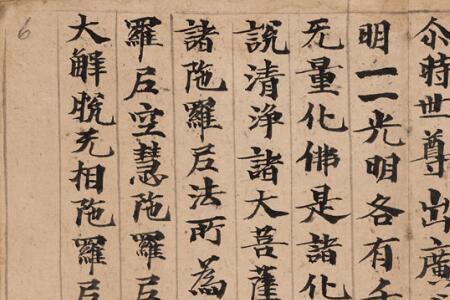 尒時世尊出廣
明一一光明各有千
无量化佛是諸化
說清淨諸大菩薩
諸陁羅尼法所為
羅尼空慧陁羅尼
大解脫无相陁羅尼
6